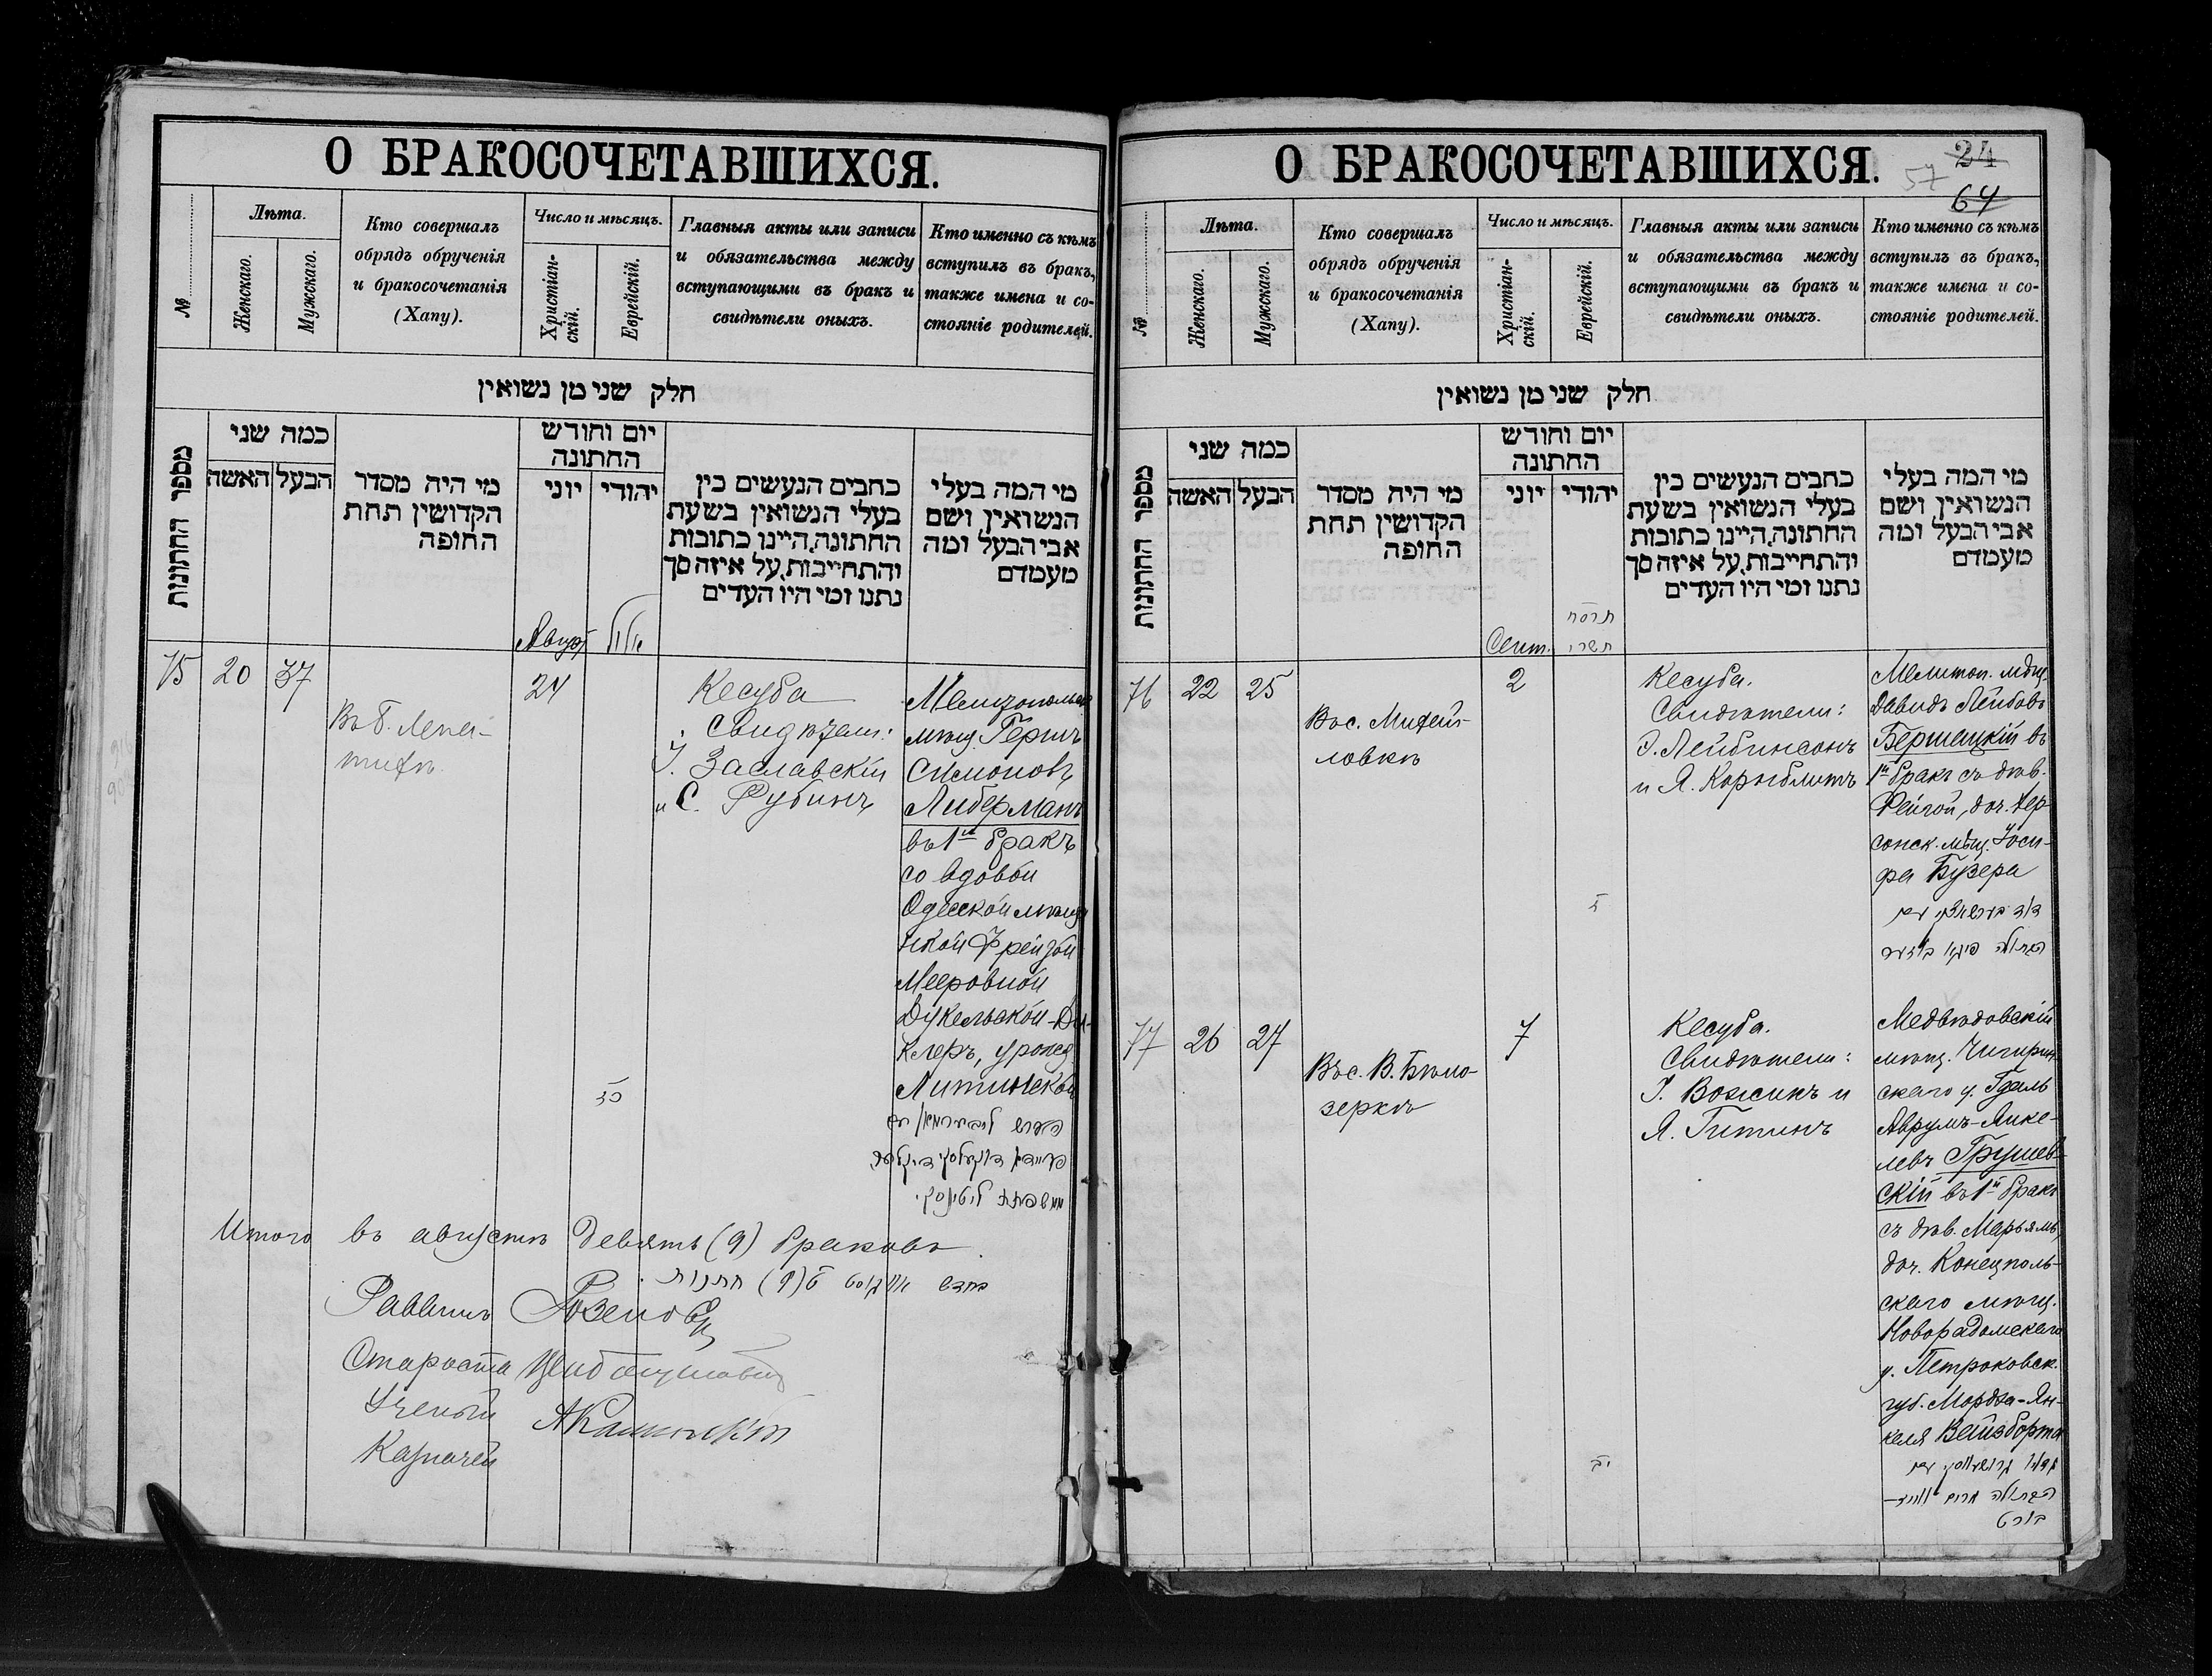 О БРАКОСОЧЕТАВШИХСЯ.
№
Лѣта.
Женскаго.
Мужскаго.
Кто совершалъ
обрядъ обрученія
и бракосочетанія
(Хапу).
Число и мѣсяцъ.
Христіан-
скій.
Еврейскій.
Главныя акты или записи
и обязательства между
вступающими въ бракъ и
свидѣтели оныхъ.
Кто именно съ кѣмъ
вступилъ въ бракъ,
также имена и со-
стояніе родителей.
חלק שני מן נשואין
מספר החתונות
כמה שני
האשה
הבעל
מי היה מסדר
הקדושין תחת
החופה
יום וחודש
החתונה
יוני
יהודי
כתבים הנעשים בין
בעלי הנשואין בשעת
החתונה, היינו כתובות
והתחייבות, על איזה סך
נתנו ומי היו העדים
מי המה בעלי
הנשואין ושם
אבי הבעל ומה
מעמדם
Август
אלול
75
20
37
Въ б. Лепа-
тихѣ
24
כז
Кесуба
Свидѣтели:
І. Заславскій
и С. Рубинъ
Мелитопольск
мѣщ. Гершъ
Симоновъ
Либерманъ
въ 1й бракъ
со вдовой
Одесской мѣщан
ской Фрейдой
Мееровной
Дукельской-Ди-
клеръ, урожд.
Литинской
הערש ליבערמאן עם
פריידא דוקעלסקי דיקלער,
ממשפחת ליטינסקי
Итого въ августѣ девять (9) браковъ
בחדש אויגוסט ט (9) חתונות
Раввинъ
Староста
Ученый
Казначей
О БРАКОСОЧЕТАВШИХСЯ.
24
57
64
№
Лѣта.
Женскаго.
Мужскаго.
Кто совершалъ
обрядъ обрученія
и бракосочетанія
(Хапу).
Число и мѣсяцъ.
Христіан-
скій.
Еврейскій.
Главныя акты или записи
и обязательства между
вступающими въ бракъ и
свидѣтели оныхъ.
Кто именно съ кѣмъ
вступилъ въ бракъ,
также имена и со-
стояніе родителей.
חלק שני מן נשואין
מספר החתונות
כמה שני
האשה
הבעל
מי היה מסדר
הקדושין תחת
החופה
יום וחודש
החתונה
יוני
יהודי
כתבים הנעשים בין
בעלי הנשואין בשעת
החתונה, היינו כתובות
והתחייבות, על איזה סך
נתנו ומי היו העדים
מי המה בעלי
הנשואין ושם
אבי הבעל ומה
מעמדם
Сент.
תרסח
תשרי
76
22
25
Въ с. Михай-
ловкѣ
2
ז
Кесуба.
Свидѣтели:
Э. Лейбинсонъ
и Я. Корнблитъ
Мелитоп. мѣщ.
Давидъ Лейбовъ
Бершацкій въ
1й бракъ съ дѣв.
Фейгой, доч. Хер-
сонск. мѣщ. Іоси-
фа Бузера
דוד בערשאצקי עם
הבתולה פיגא בוזער
77
26
27
Въ с. В. Бѣло-
зеркѣ
7
יב
Кесуба.
Свидѣтели:
І. Вожикъ и
Я. Гитинъ
Медвѣдовскій
мѣщ. Чигирин-
скаго у. Гдаль
Аврумъ-Янке-
левъ Грушев-
скій въ 1й бракъ
съ дѣв. Марьямъ,
доч. Конецполь-
скаго мѣщ.
Новорадомскаго
у. Петроковск.
губ. Мордха-Ян-
келя Вейсборта
גדליה גרושעווסקי עם
הבתולה מרים ווייס–
בורט